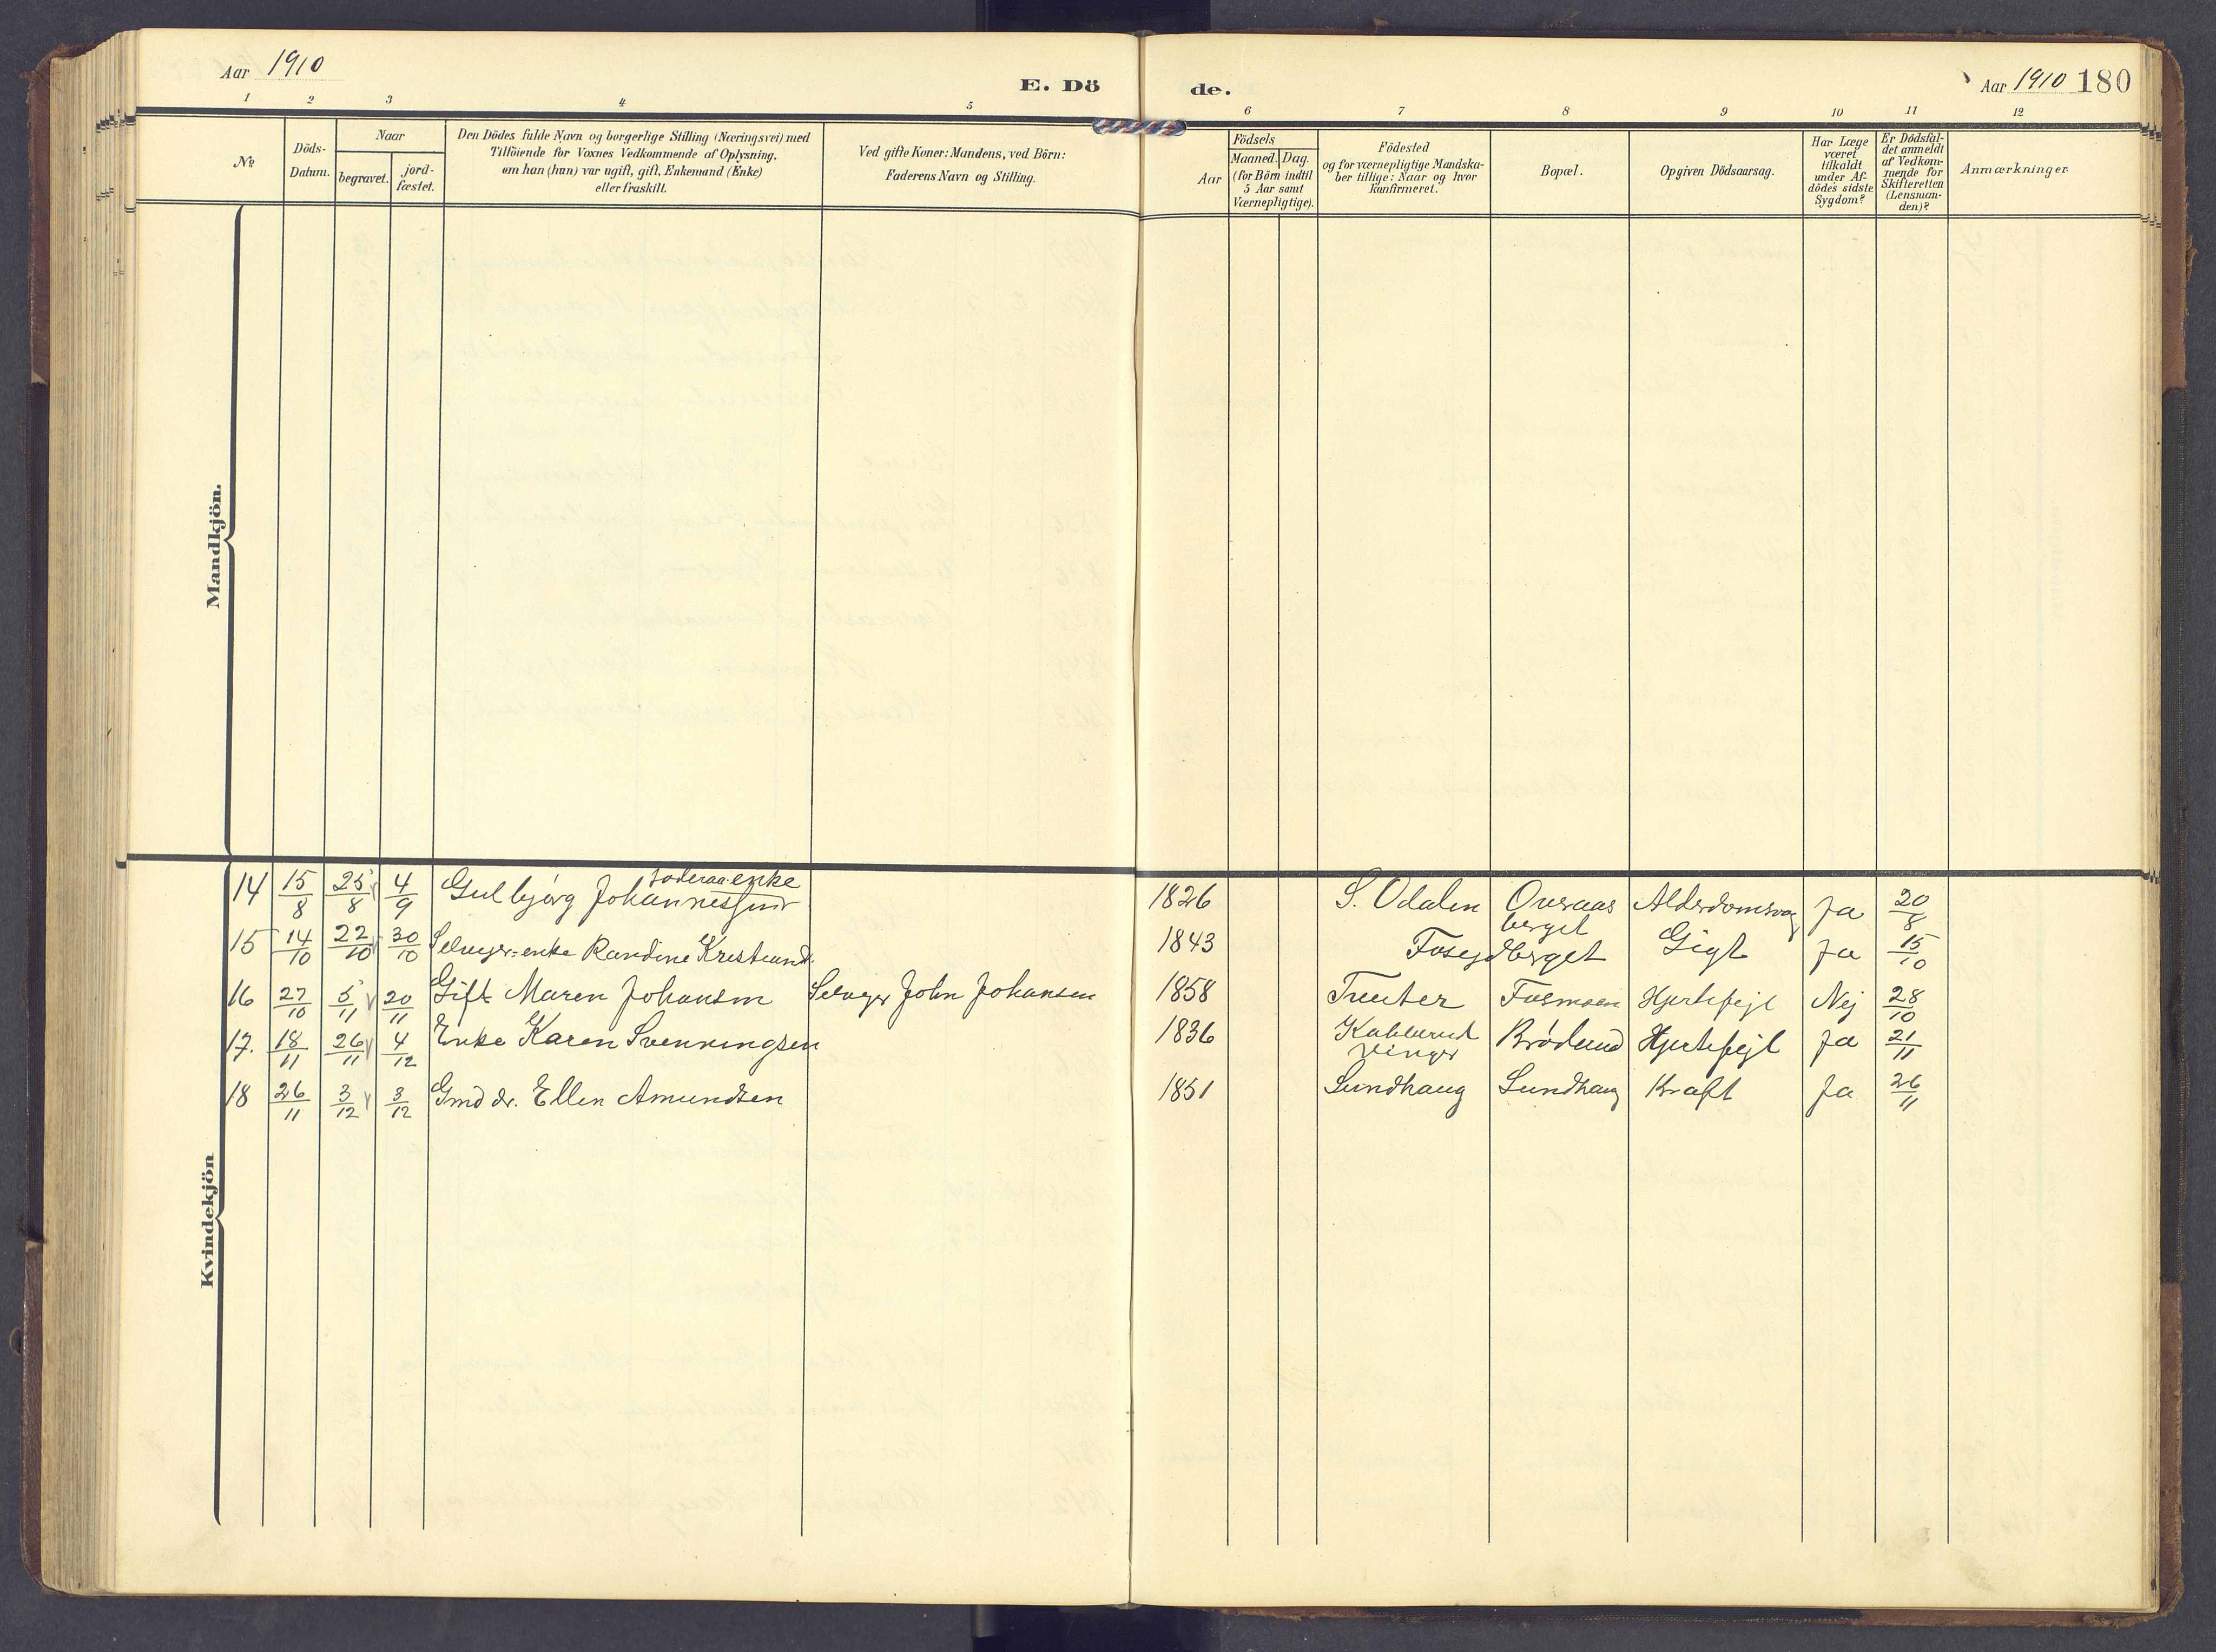 Aar 1910
E. Dö
de.
Aar 1910 180
1 2 3 4 5 6 7 8 9 10 11 12
No
Döds-
Datum.
Naar
begravet.
jord-
fæstet.
Den Dödes fulde Navn og borgerlige Stilling (Næringsvei) med
Tilföiende for Voxnes Vedkommende af Oplysning,
om han (hun) var ugift, gift, Enkemand (Enke)
eller fraskilt.
Ved gifte Koner: Mandens, ved Börn:
Faderens Navn og Stilling.
Födsels
Aar
Maaned. Dag.
(for Börn indtil
5 Aar samt
Værnepligtige).
Födested
og for værnepligtige Mandska-
ber tillige: Naar og hvor
konfirmeret.
Bopæl.
Opgiven Dödsaarsag.
Har Læge
været
tilkaldt
under Af-
dödes sidste
Sygdom?
Er Dödsfal-
det anmeldt
af Vedkom-
mende for
Skifteretten
(Lensman-
den)?
Anmærkninger
Mandkjön.
Kvindekjön
14 15/8 25/8 4/9 Gulbjörg Johannes enke 1826 S. Odalen Overaas berget Ja 20/8
15 14/10 22/10 30/10 enke Randine 1843 Gigt Ja 15/10
16 27/10 5/11 20/11 Gift Maren Johansen Selveger John Johansen 1858 Fosmoen Hjertefejl Nej 28/10
17. 18/11 26/11 4/12 Enke Karen Svenningsen 1836 Vinger Hjertefejl Ja 21/11
18 26/11 3/12 3/12 Gmd dr. Ellen Amundsen 1851 Sundhaug Sundhaug Kræft Ja 26/11